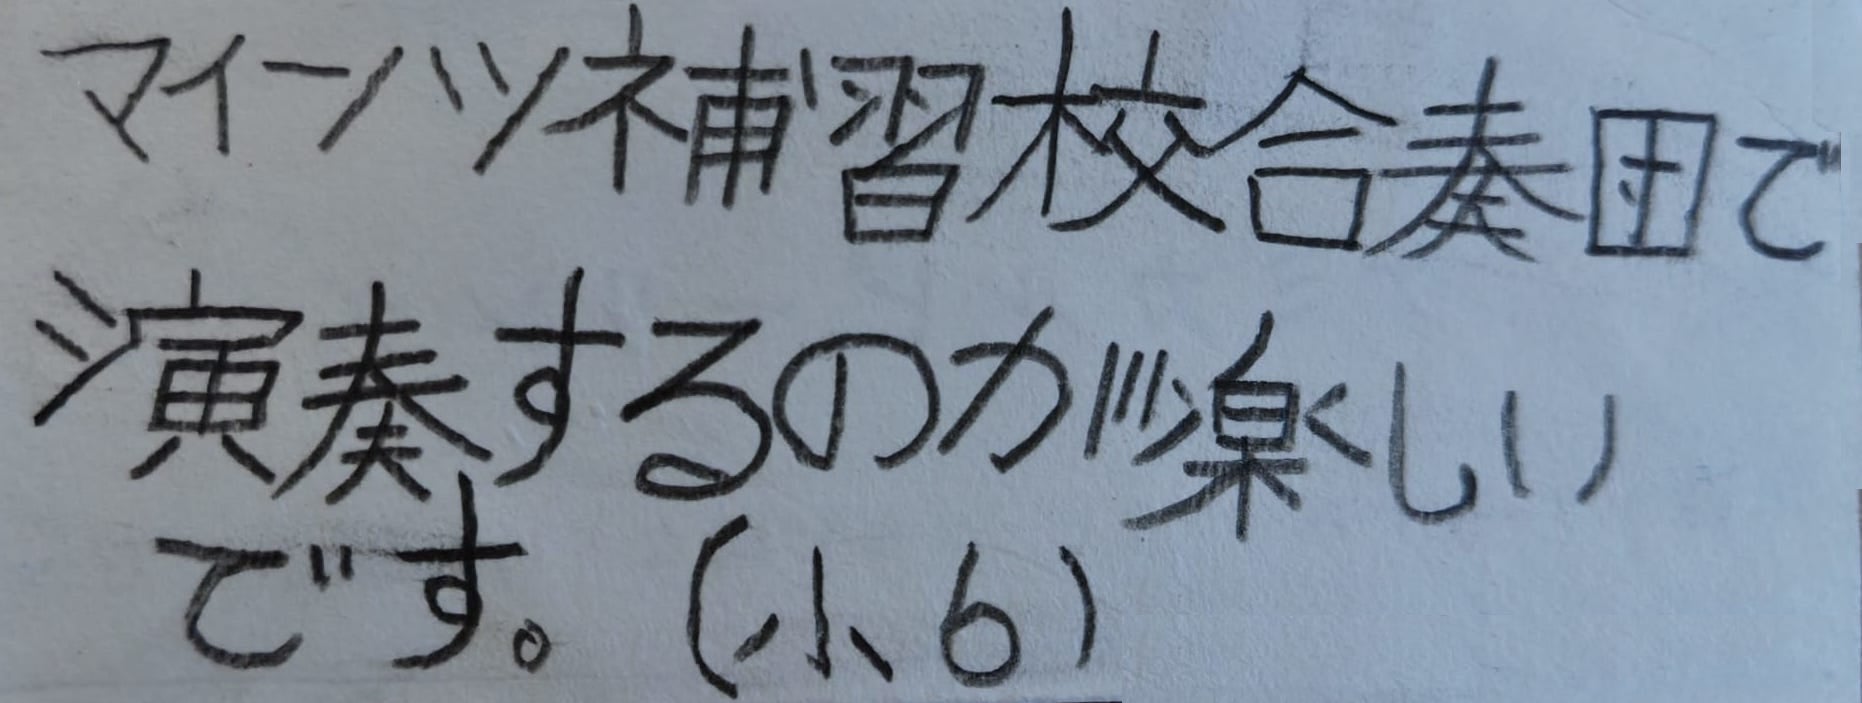 マインツ補習校合奏団で
演奏するのが楽しい
です。(小6)